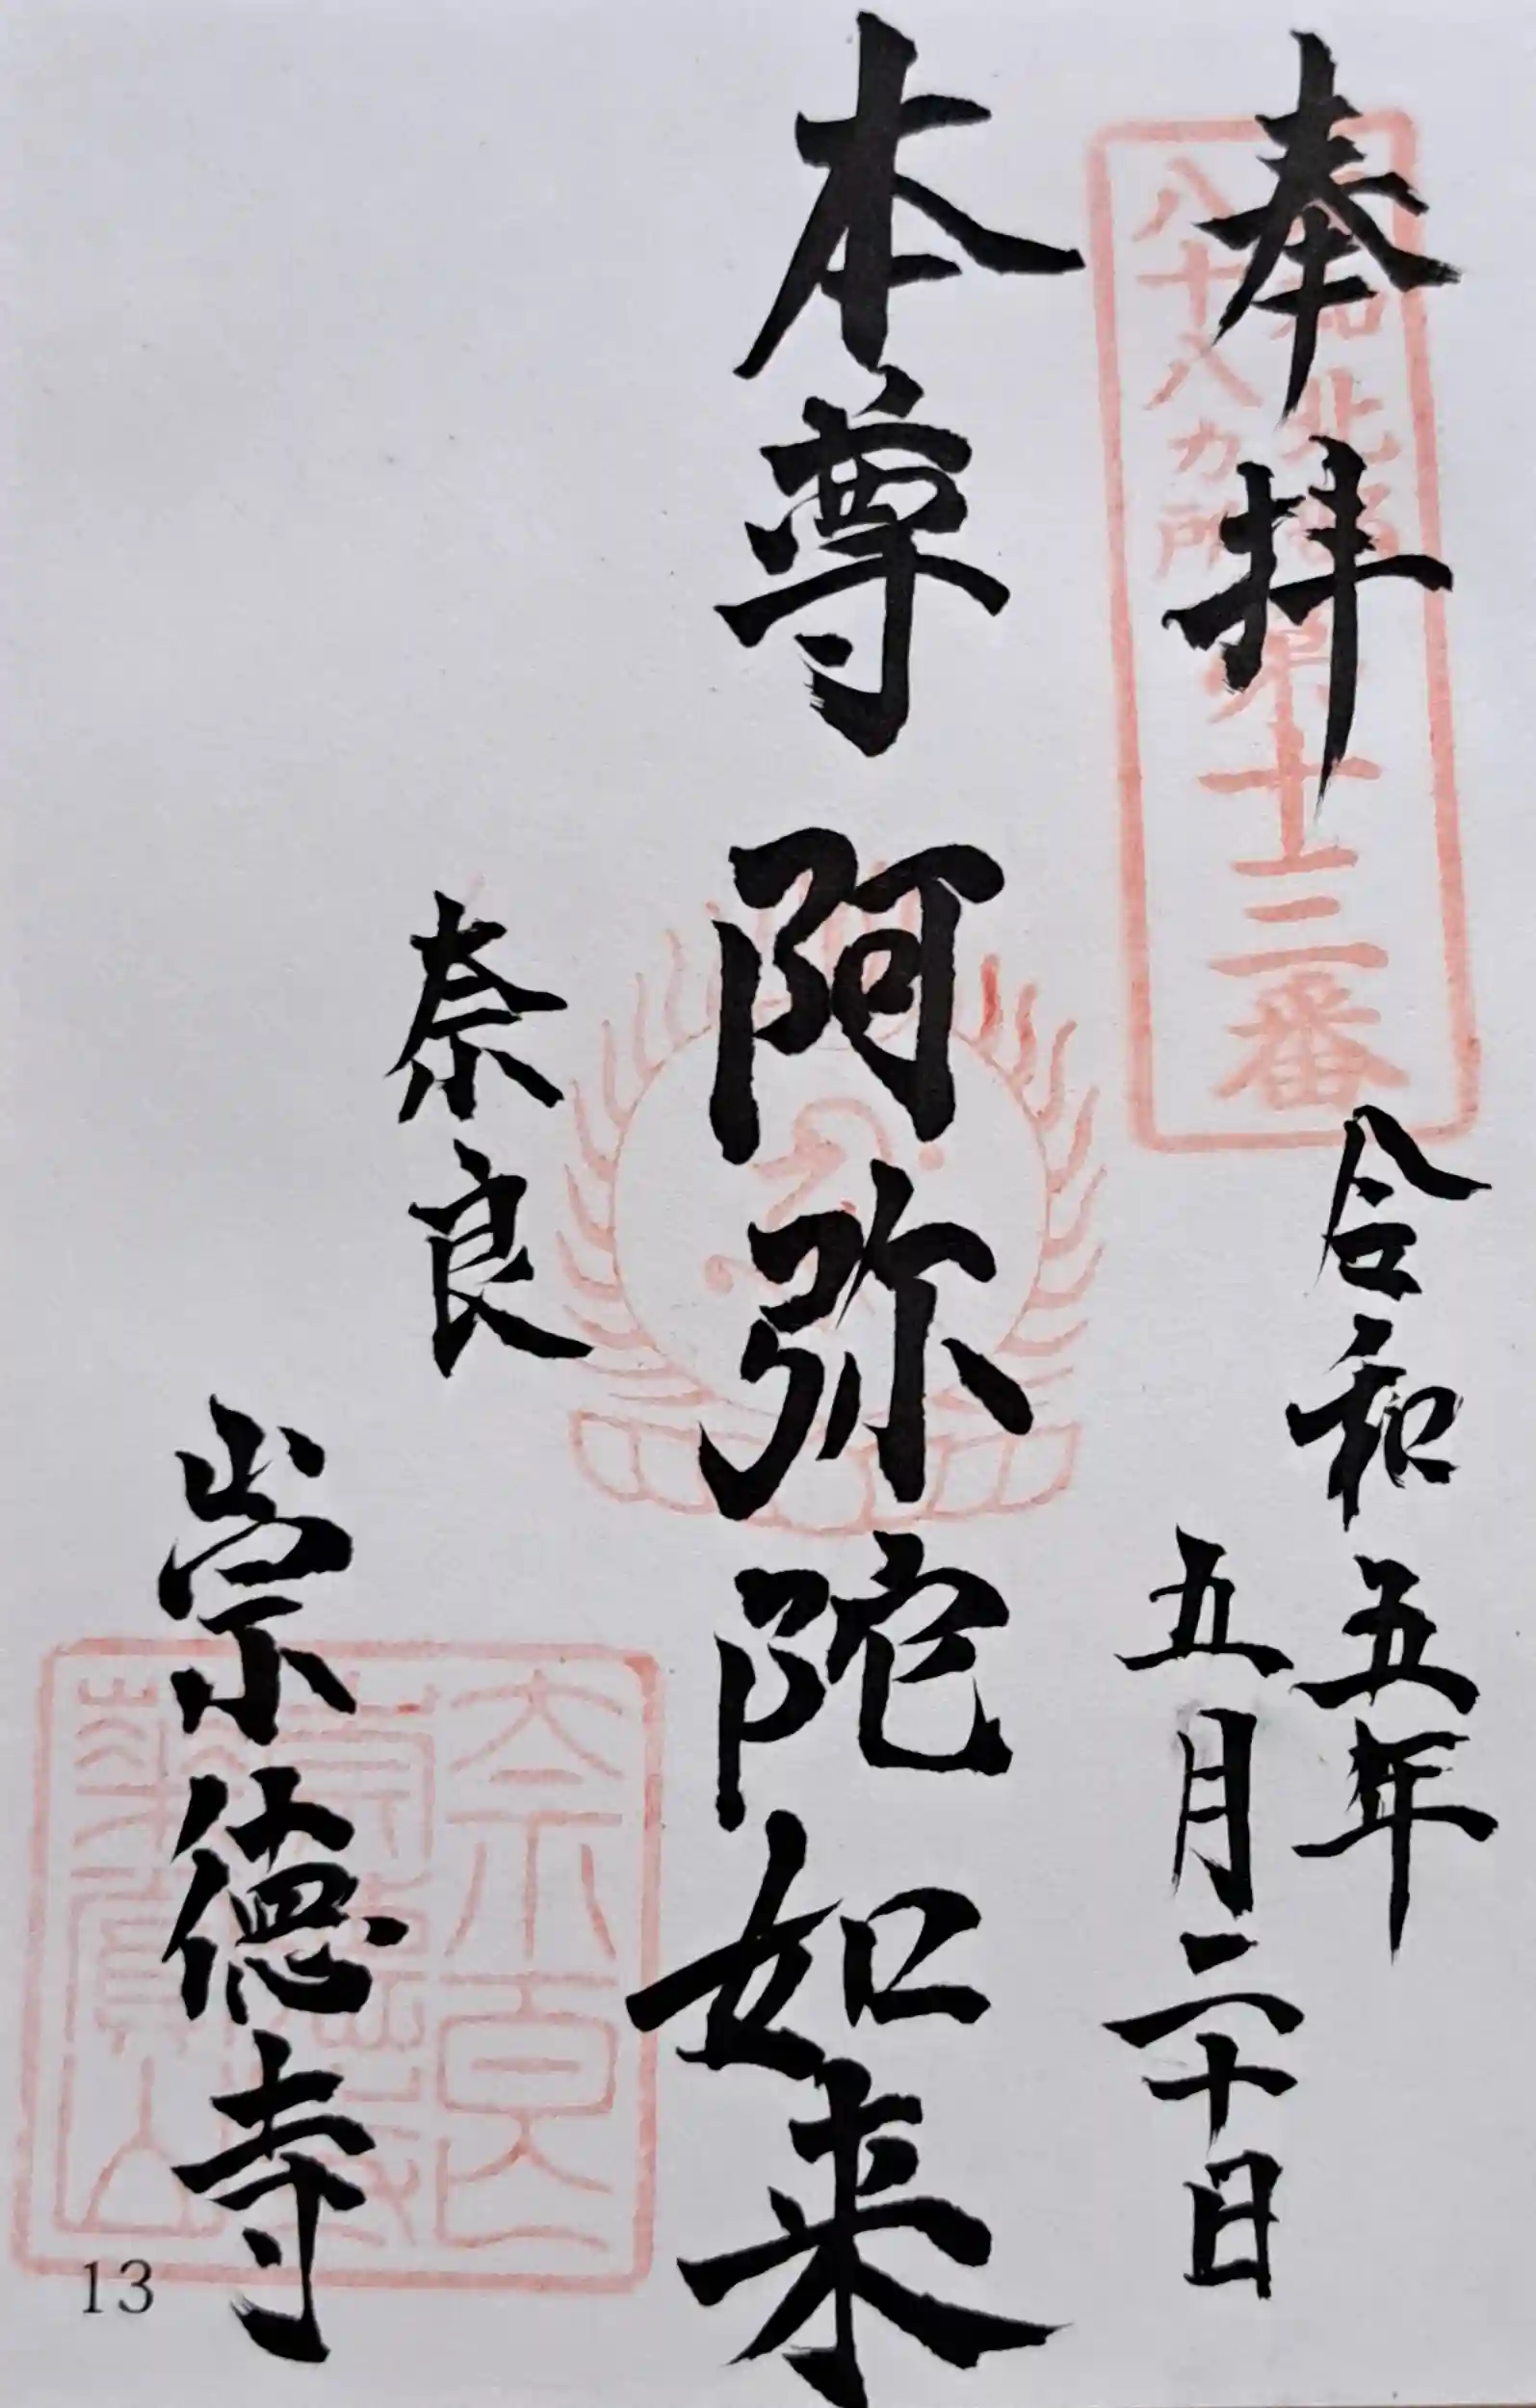 奉拝
令和五年
五月二十日
本尊 阿弥陀如来
奈良
崇徳寺
八十八カ所
第十三番
13